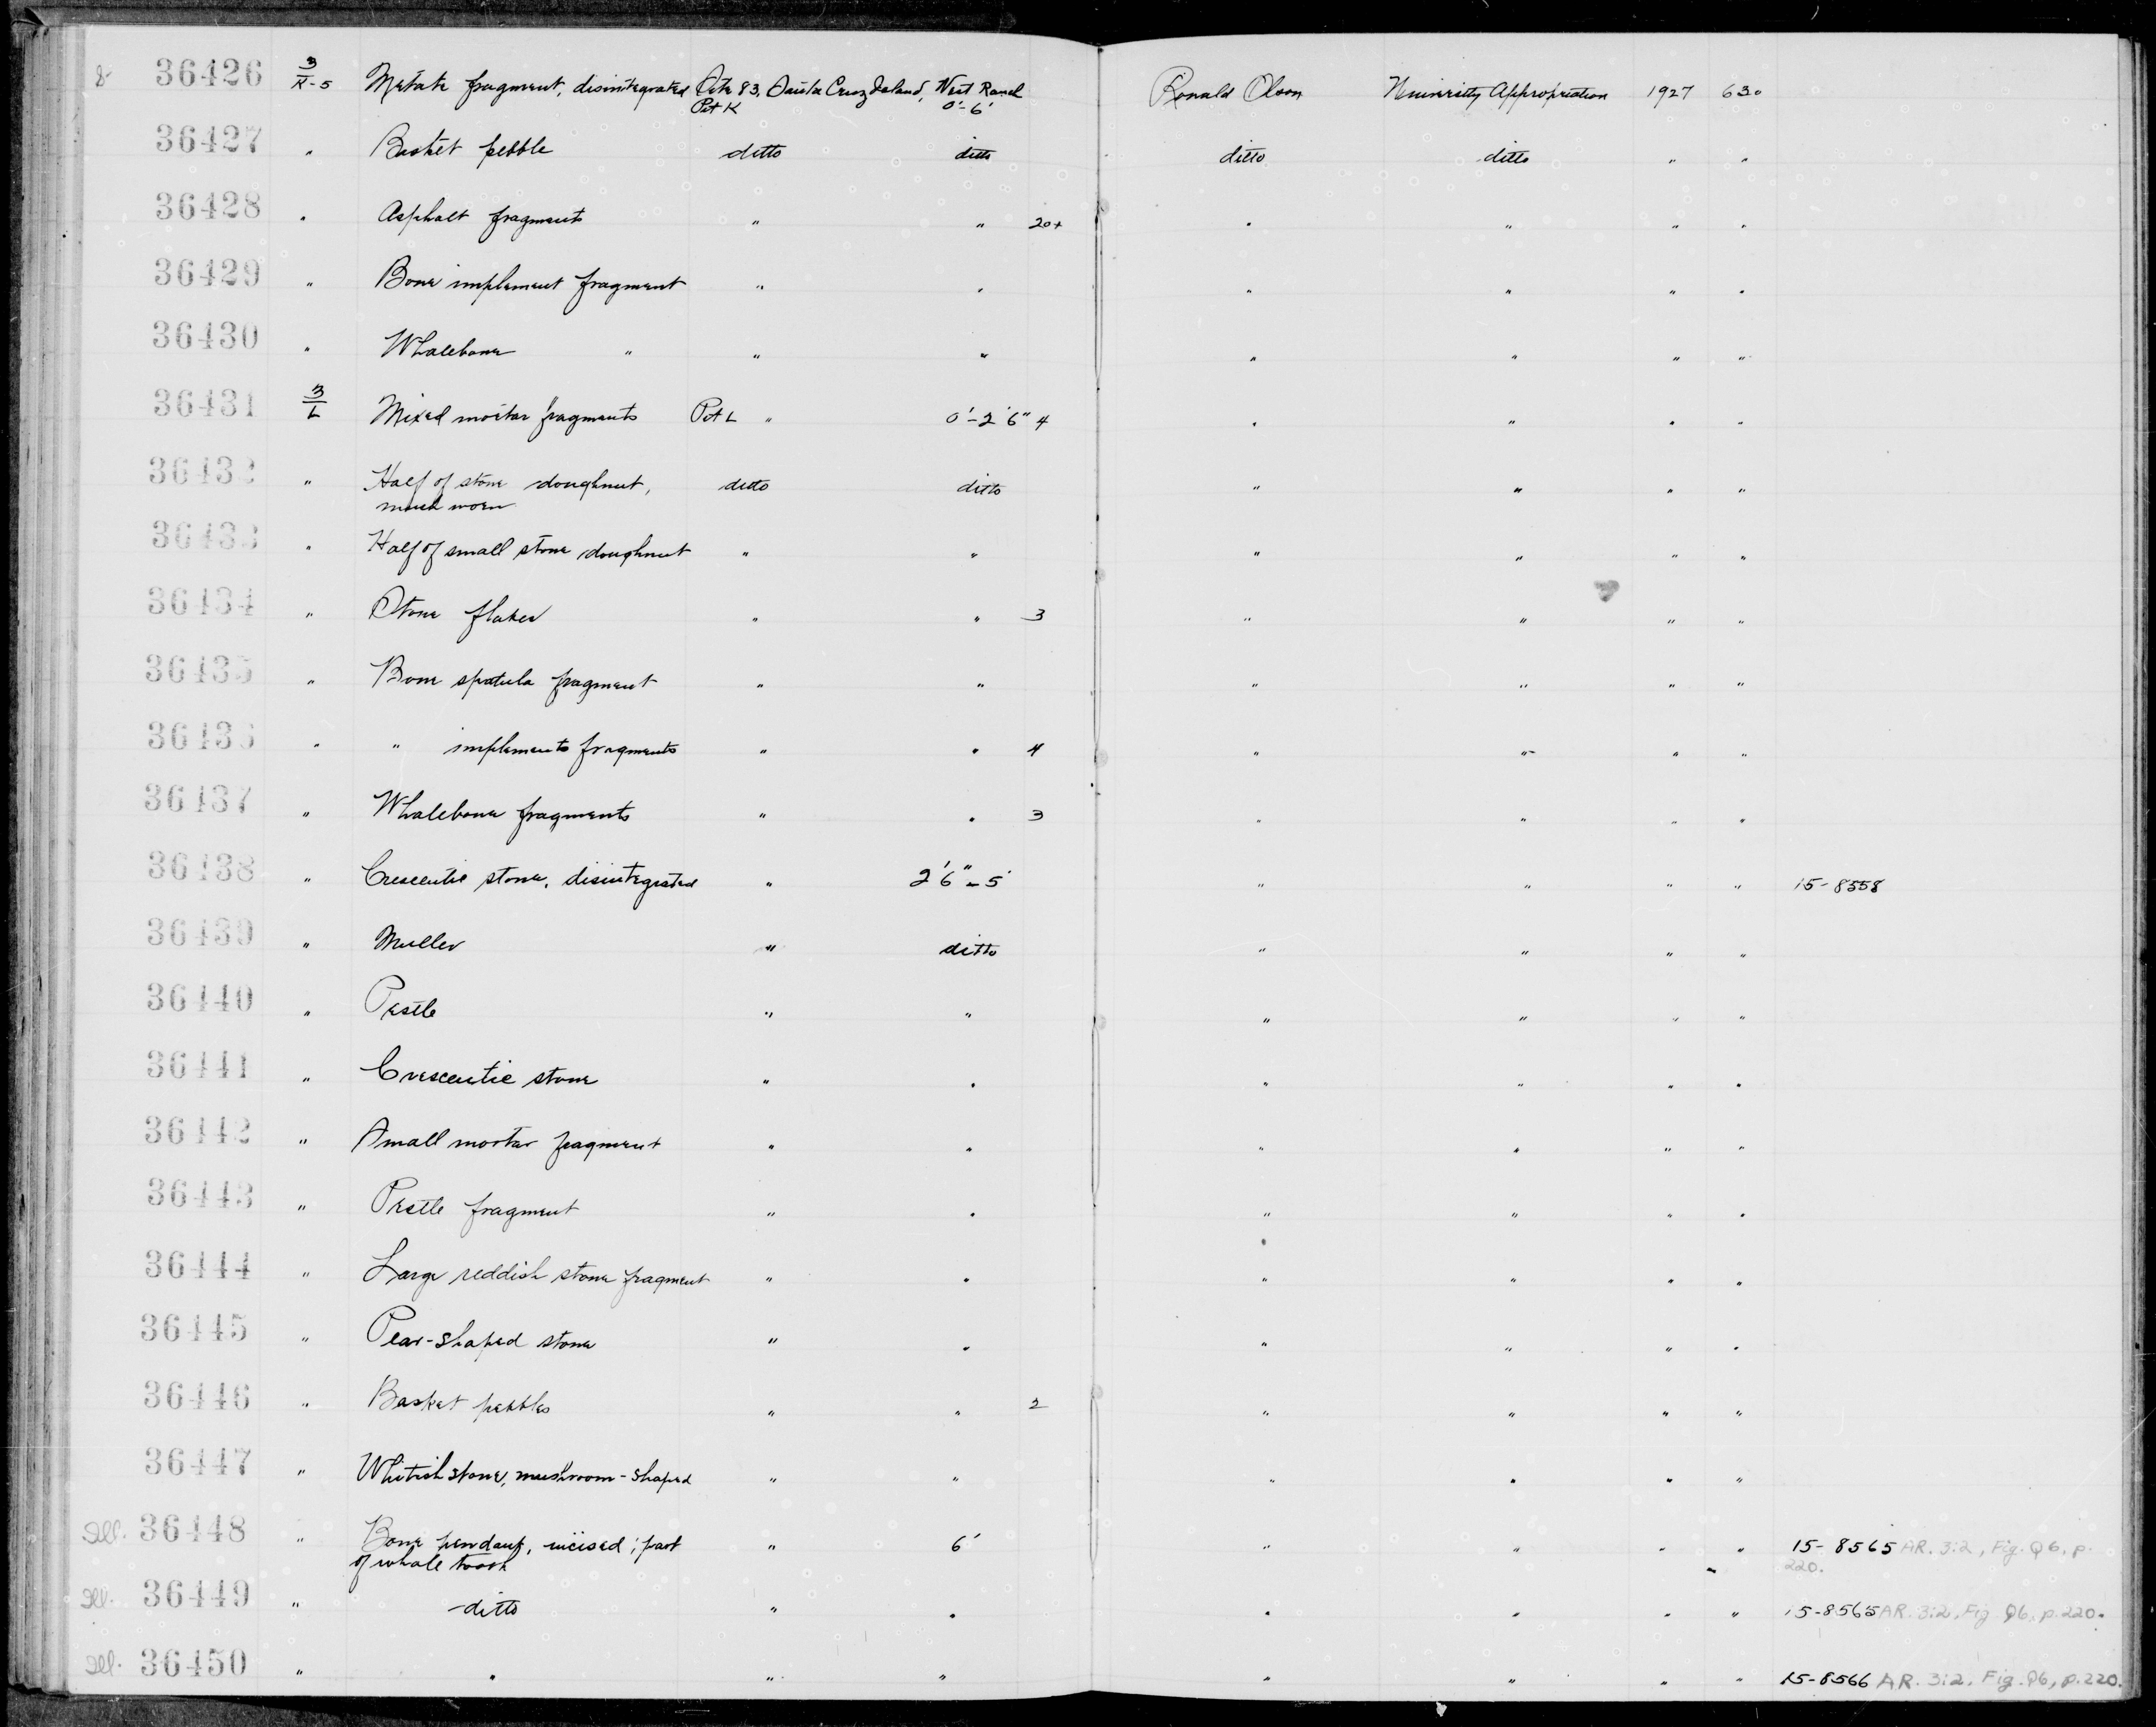 8- 36426 3/K-5 Metate fragment, disintegrated Site 83, Santa Cruz Island, West Ranch Ronald Olson University Appropriation 1927 630
Pit K 0'-6'
36427 " Basket pebble ditto ditto ditto ditto " "
36428 " Asphalt fragments " " 20+ " " " "
36429 " Bone implement fragment " " " " " "
36430 " Whalebone " " " " " " "
36431 3/L Mixed mortar fragments Pit L " 0'-2'6" 4 " " " "
36432 " Half of stone doughnut, ditto ditto " " " "
much worn
36433 " Half of small stone doughnut " " " " " "
36434 " Stone flakes " " 3 " " " "
36435 " Bone spatula fragment " " " " " "
36436 " " implements fragments " " 4 " " " "
36437 " Whalebone fragments " " 3 " " " "
36438 " Crescentic stone, disintegrated " 2'6"-5' " " " " 15-8558
36439 " Muller " ditto " " " "
36440 " Pestle " " " " " "
36441 " Crescentic stone " " " " " "
36442 " Small mortar fragment " " " " " "
36443 " Pestle fragment " " " " " "
36444 " Large reddish stone fragment " " " " " "
36445 " Pear-shaped stone " " " " " "
36446 " Basket pebbles " " 2 " " " "
36447 " Whitish stone, mushroom-shaped " " " " " "
Ill. 36448 " Bone pendant, incised; part " 6' " " " " 15-8565 AR. 3:2, Fig. Q6, p.
of whale tooth 220.
Ill. 36449 " ditto " " " " " " 15-8565 AR. 3:2, Fig. Q6, p. 220.
Ill. 36450 " " " " " " " " 15-8566 AR. 3:2, Fig. Q6, p. 220.